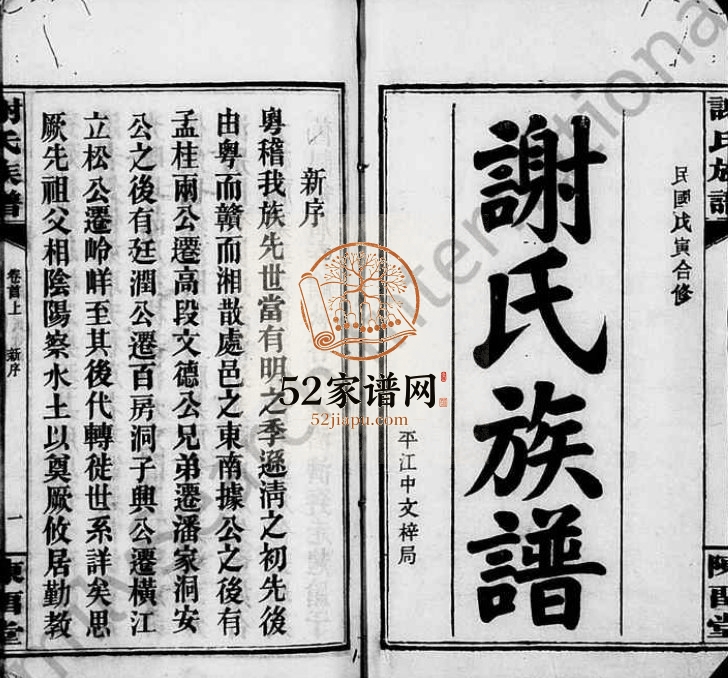 謝氏族譜
民國戊寅合修
謝氏族譜
平江中文梓局
新序
粵稽我族先世當有明之季遜清之初先後
由粵而贛而湘散處邑之東南據公之後有
孟桂兩公遷高段文德公兄弟遷潘家洞安
公之後有廷潤公遷百房洞子興公遷橫江
立松公遷岭咩至其後代轉徙世系詳矣思
厥先祖父相陰陽察水土以奠厥攸居勤教
謝氏族譜
卷首上
新序
一
52家谱网
52jiapu.com